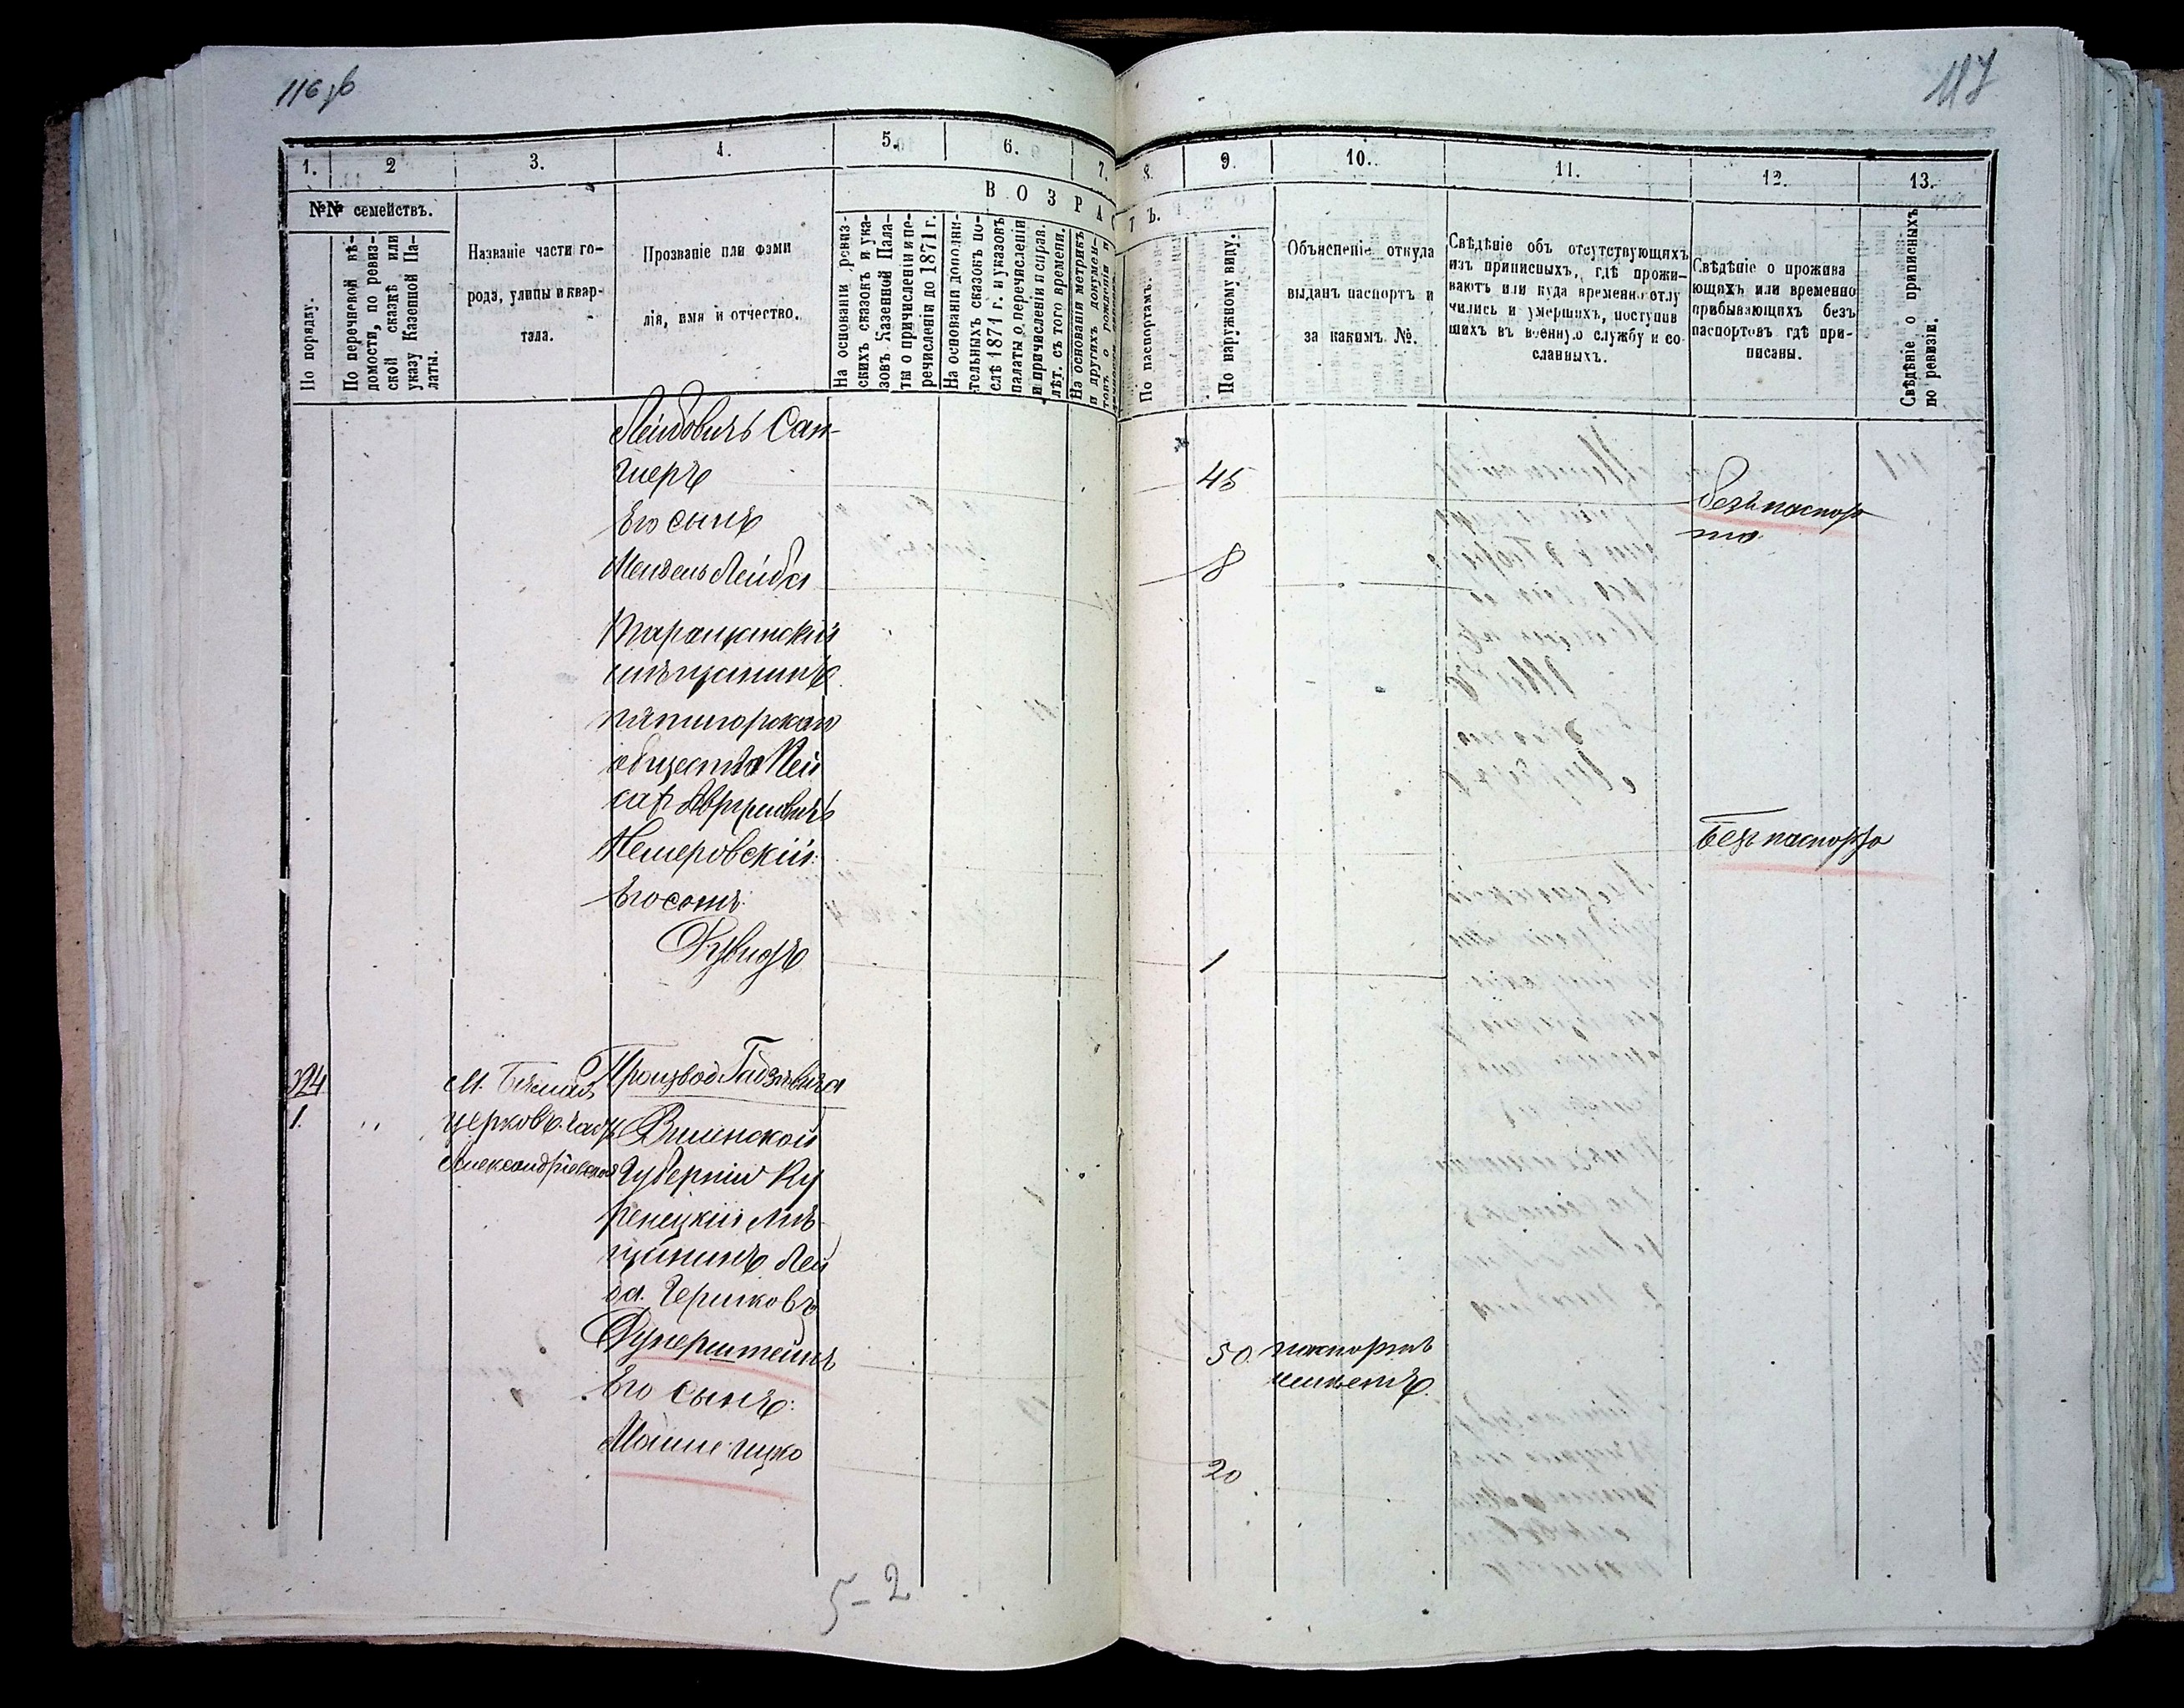 116 об
117
1.
2
3.
4.
5.
6.
7.
8.
9.
10.
11.
12.
13.
№№ семействъ.
В О З Р А
Т Ъ.
По порядку.
По перечневой вѣ-
домости, по ревиз-
ской сказкѣ или
указу Казенной Па-
латы.
Названіе части го-
рода, улицы и квар-
тала.
Прозваніе или фами
лія, имя и отчество.
На основаніи ревиз-
скихъ сказокъ и ука-
зовъ Казенной Пала-
ты о причисленіи и пе-
речисленіи до 1871 г.
На основаніи дополни-
тельныхъ сказокъ по-
слѣ 1871 г. и указовъ
палаты о перечисленіи
и причисленіи и справ.
лѣт. съ того времени.
На основаніи метрикъ
и другихъ докумен-
товъ о рожденіи и
По паспортамъ.
По наружному виду.
Объясненіе откуда
выданъ паспортъ и
за какимъ №.
Свѣдѣніе объ отсутствующихъ
изъ приписныхъ, гдѣ прожи-
ваютъ или куда временно отлу
чились и умершихъ, поступив
шихъ въ военную службу и со
сланныхъ.
Свѣдѣніе о прожива
ющихъ или временно
прибывающихъ безъ
паспортовъ гдѣ при-
писаны.
Свѣдѣніе о приписныхъ
по ревизіи.
Лейбовичъ Сан-
гиеръ
45
безъ паспор
та
Его сынъ
Мендель Лейба
8
Таращанскій
мѣщанинъ
пятигорскаго
общества Пей
сах
Немеровскій
безъ паспорта
Его сынъ:
Дувидъ
1
324
1.
М. Бѣлая
церковь. часть
Александріевская
Производ
Виленской
Губерніи Ку
ренецкій мѣ-
щанинъ Лей
ба. Гершковъ
Диперштейнъ
50. паспортъ
имѣетъ.
Его сынъ:
Мошке Ицко
20
5-2